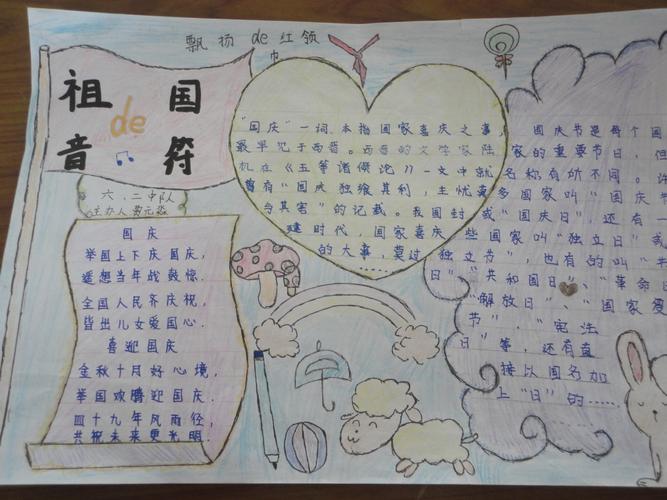 飘扬de红领
巾
祖国
de
音符
六.二中队
主办人
国庆
举国上下庆国庆,
遥想当年战鼓惊.
全国人民齐庆祝,
皆出儿女爱国心.
喜迎国庆
金秋十月好心境,
举国欢腾迎国庆.
四十九年风雨径,
共祝未来更光明.
"国庆"一词,本指国家喜庆之事,
最早见于西晋。西晋的文学家陆
机在《五等诸侯论》一文中就
曾有"国庆独飨其利,主忧莫
与其害"的记载。我国封
建时代,国家喜庆
的大事,莫过
......
国庆节是每个国
家的重要节日,但
名称有所不同。许
多国家叫"国庆节
或"国庆日"还有一
些国家叫"独立日"或
独立节",也有的叫"
日"、"共和国日"、"革命日
"解放日"、"国家
节"、"宪法
日"等,还有直
接以国名加
上"日"的......